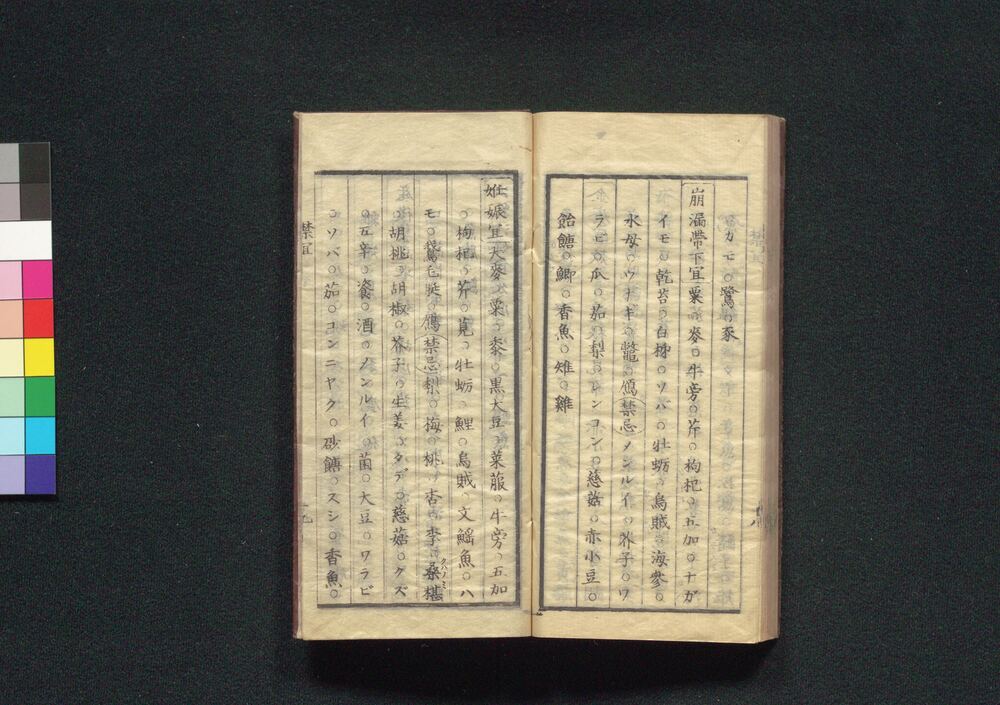 カモ○鷺○豕
崩漏帶下宜粟○麥○牛旁○芹○枸杞○五加○ナガ
イモ○乾苔○白柹○ソバ○牡蛎○烏賊○海參○
水母○ウナギ○鼈○鴈(禁忌)メンルイ○芥子○ワ
ラビ○瓜○茄○梨○レンコン○慈菇○赤小豆○
飴餹○鯽○香魚○雉○雞
妊娠宜大麥○粟○黍○黒大豆○菜菔○牛旁○五加
○枸杞○芹○莧○牡蛎○鯉○烏賊○文鰩魚○ハ
モ○鴈(禁忌)梨○梅○桃○杏○李○桑椹クハノミ
○胡桃○胡椒○芥子○生姜○タデ○慈菇○クズ
○五辛○瓷○酒○メンルイ○菌○大豆○ワラビ
○ソバ○茄○コンニヤク○砂餹○スシ○香魚○
禁宜